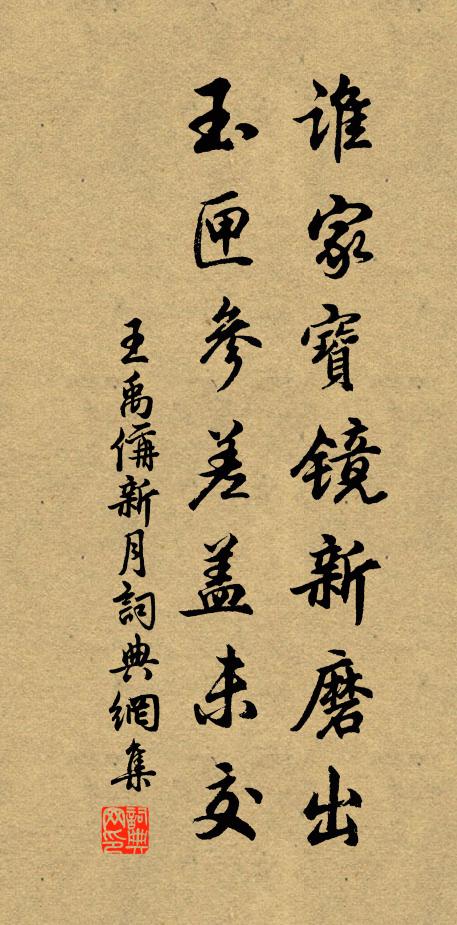 誰家寶鏡新磨出
玉匣參差盖未交
王禹偁新月詞典網集
詞典网印